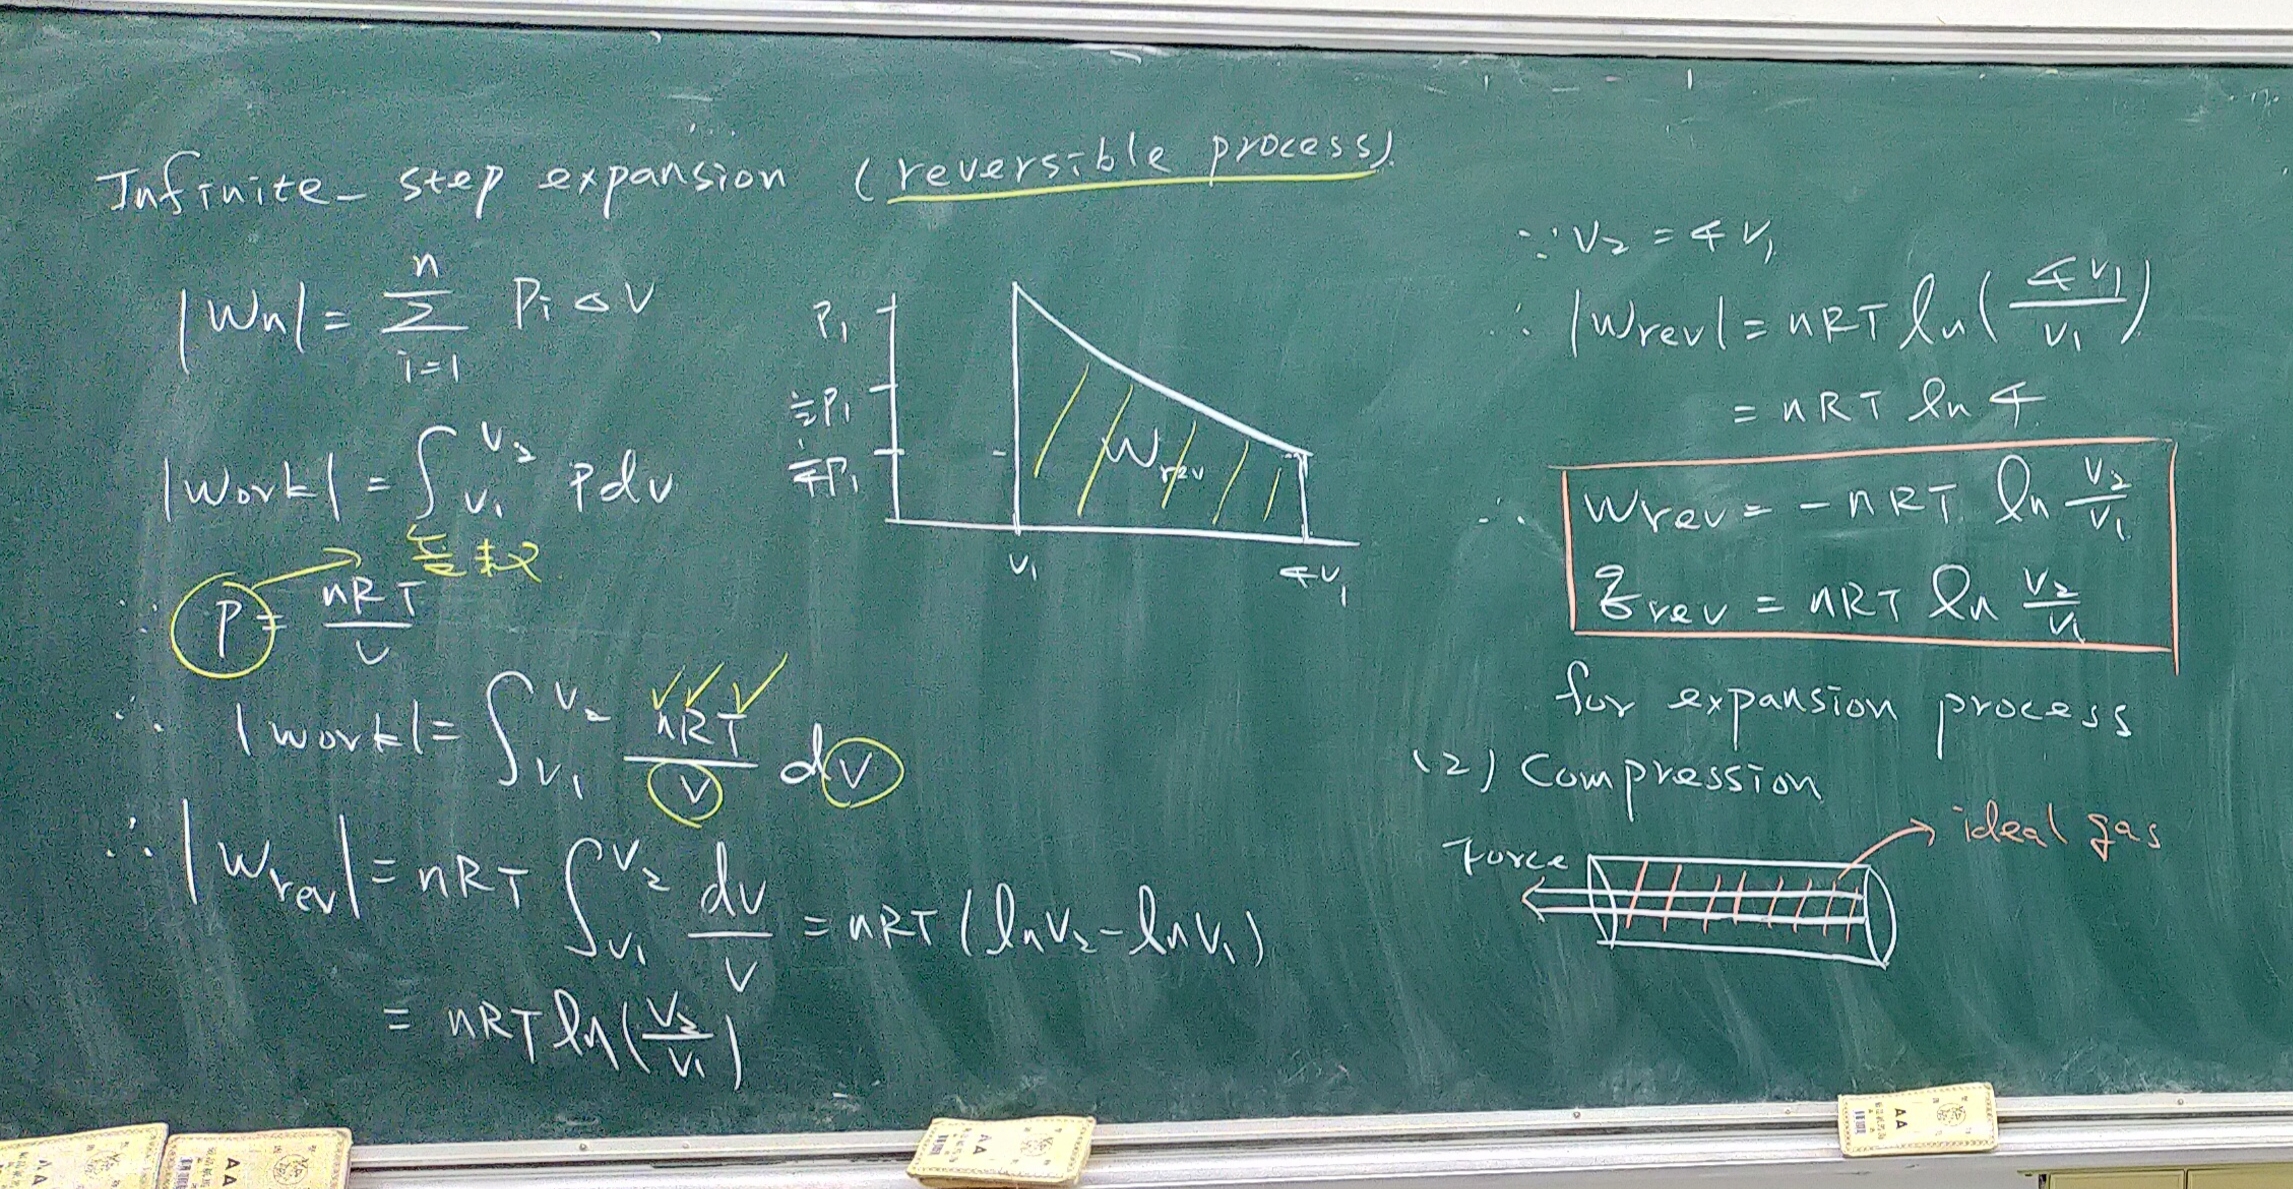 Infinite-step expansion (reversible process).
|Wn| = n Σ i=1 Pi △V
|Work| = ∫ V₁ V₂ P dv
∵ P = nRT/V
∴ |work| = ∫ V₁ V₂ nRT/V dV
∴ |Wrev| = nRT ∫ V₁ V₂ dv/V = nRT (lnV₂ - lnV₁)
= nRT ln(V₂/V₁)
P₁
½P₁
¼P₁
Wrev
V₁
4V₁
∵ V₂ = 4V₁
∴ |Wrev| = nRT ln(4V₁/V₁)
= nRT ln 4
∴ Wrev = -nRT ln V₂/V₁
qrev = nRT ln V₂/V₁
for expansion process
(2) Compression
Force
ideal gas
AA
AA
AA
AA